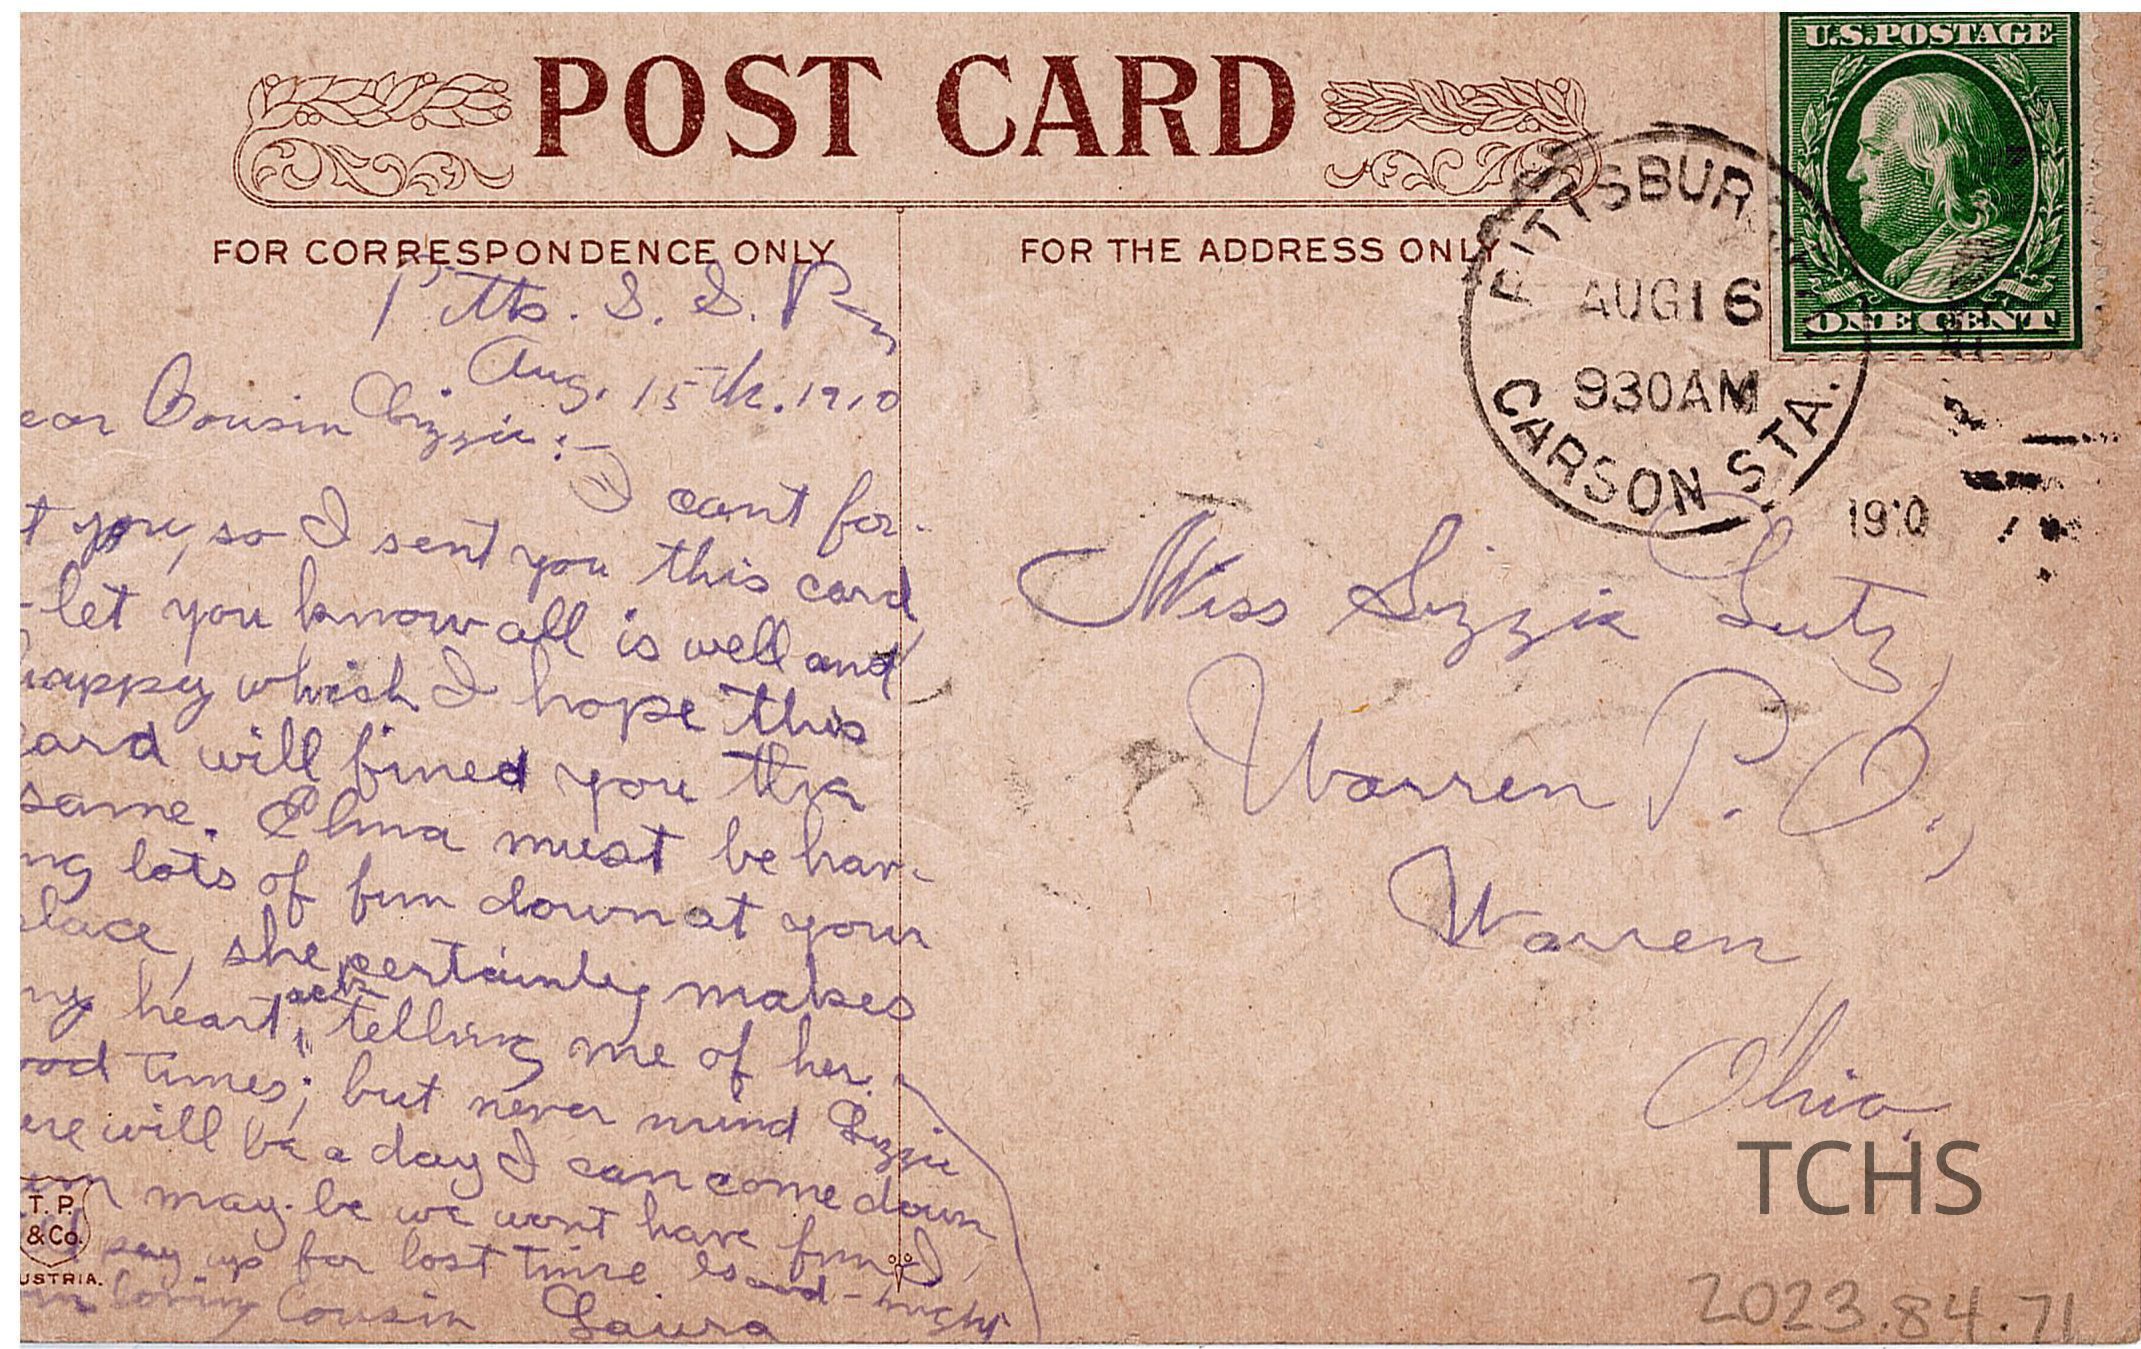 POST CARD
U.S. POSTAGE
ONE CENT
PITTSBUR
AUG 16
930 AM
CARSON STA.
1910
FOR CORRESPONDENCE ONLY
FOR THE ADDRESS ONLY
Pitts. S. S.
Aug. 15th. 1910
ear Cousin Lizzie:-
I cant for-
t you, so I sent you this card,
let you know all is well and
happy which I hope this
card will fined you the
same. Elma must be hav-
ng lots of fun down at your
place, she certainly makes
my heart ach, telling me of her
ood times; but never mind Lizzie
ere will be a day I can come down
may be we wont have fun I
pay up for lost time
loving Cousin Laura
T. P.
& Co.
USTRIA.
Miss Lizzie Lutz,
Warren P. O.,
Warren
Ohio,
TCHS
2023.84.71